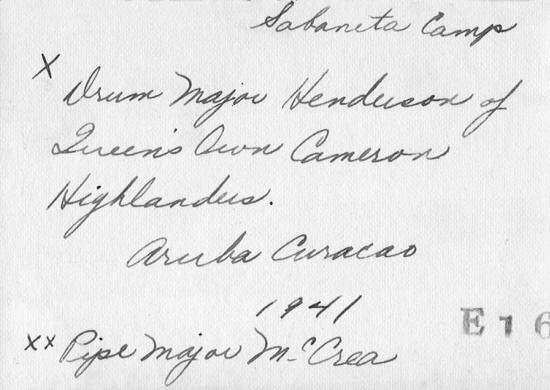 Sabaneta Camp
X
Drum Major Henderson of
Queen's Own Cameron
Highlanders.
Aruba Curacao
1941
XX Pipe Major McCrea
E 1 6